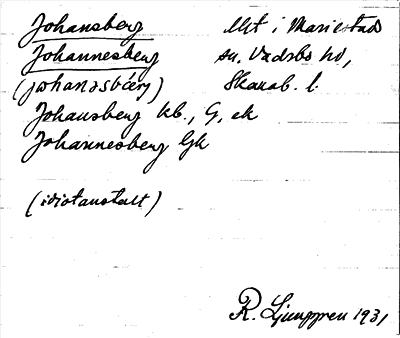 Johansberg
Johannesberg
(johanəsbærj)
Johansberg kb., G, ek
Johannesberg Gk
(idiotanstalt)
Ult i Mariestads
sn. Vadsbo hd,
Skarab. l.
R. Ljunggren 1931